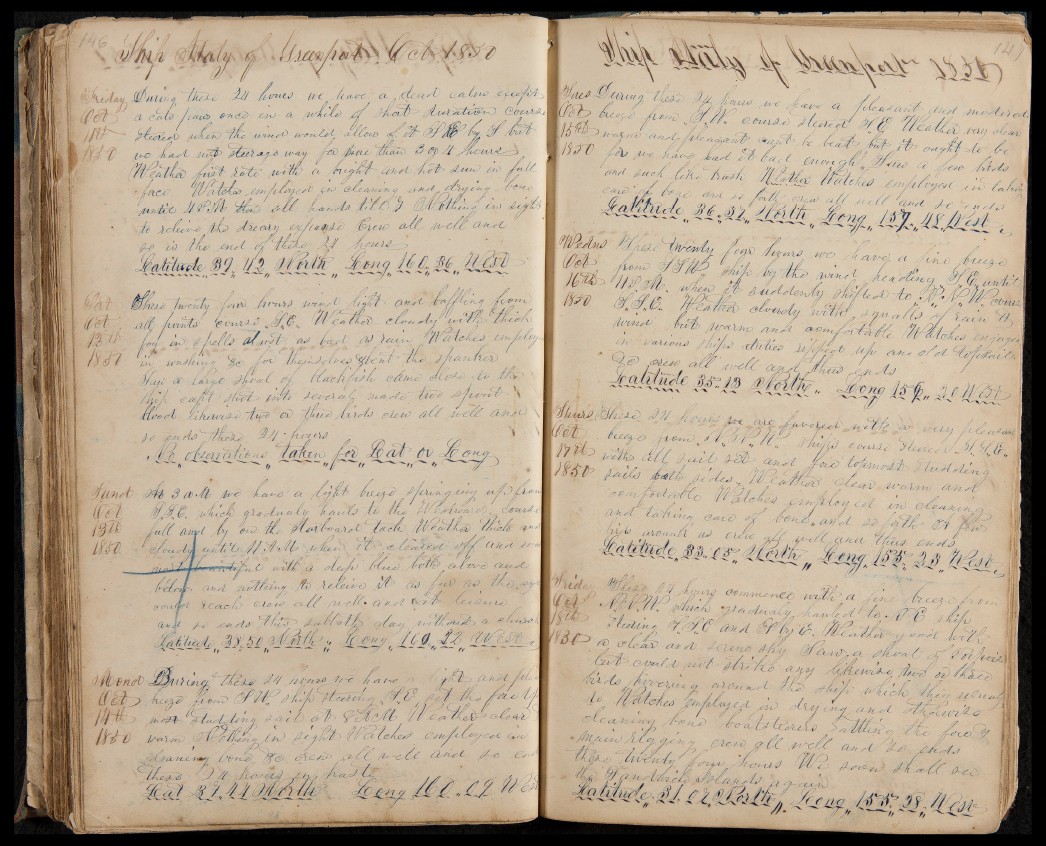 146
Ship Italy of Greenport Oct 1850
Friday During these 24 hours we have a dead calm except
Oct a cats paw once in a while of short duration Course
11th steered when the wind would allow of it by S but
1850 we had not steerage way for more than 3 or 4 hours
Weather first rate with a bright and hot sun in full
face Watches employed in cleaning and drying bone
until 4 P.M then all hands Nothing in sight
to relieve the dreary expanse Crew all well and
so is the end of these 24 hours
Latitude 37,, 42,, North,, Long,, 160,, 36,, West
Sat These twenty four hours wind light and baffling from
Oct all points course S.E. Weather cloudy with thick
12th fog in spells almost as bad as rain Watches employed
1850 in washing &c for themselves the spanker
a large shoal of blackfish came close to the
ship capt shot into several made two spout
blood likewise two or three birds crew all well and
so ends these 24 hours
No observations taken for Lat or Long
Sund At 3 a.M we have a light breeze springing up from
Oct S.S.E. which gradualy hauls to the Westward Course
13th full and by on the starboard tack Weather thick and
1850 cloudy until 11 A.M when it cleared off and
most beautiful with a deep blue both above and
below and nothing to releive it as far as the eye
reach crew all well and at leisure
and so ends this sabbath day without a
Latitude,, 38,, 50,, North,, Long,, 160,, 22,, West
Mond During these 24 hours we have a light and
Oct breeze from S W. ship steering S.E. got the fore top
14th mast studding sail at 8 A.M Weather clear
1850 warm Nothing in sight Watches employed in
cleaning bone &c crew all well and so end
these 24 hours in haste
Lat 37,, 47 North Long 160,, 02 West
147
Ship Italy of Greenport 1850
Tues During these 24 hours we have a pleasant and moderate
Oct breeze from S.W. course steered S.E Weather very clear
15th warm and pleasant cant be beat but it ought to be
1850 for we have had it bad enough Saw a few birds
and such like trash Weather Watches employed in taking
care of bone and so forth crew all well and so ends
Latitude 36,, 37,, North,, Long,, 157,, 48 West
Wednes These twenty four hours we have a fine breeze
Oct from S S W ship by the wind heading S.E. until
16th 11 P.M. when it suddenly shifted to N.N.W. course
1850 S.S.E. Weather cloudy with squalls of rain &
wind but warm and comfortable Watches engaged
in various ships duties ripped up an old topsail
&c crew all well and thus ends
Latitude 35,, 13 North,, Long 156,, 20 West
Thurs These 24 hours we are favored with a very pleasant
Oct breeze from N.N.W. ships course steered S.S.E.
17th with all sail set and fore topmost studding
1850 sails both sides. Weather clear warm and
comfortable Watches employed in cleaning
and taking care of bone and so forth A few
around us crew all well and thus ends
Latitude,, 33,, 05,, North,, Long,, 155,, 23,, West
Frida These 24 hours commence with a fine breeze from
Oct N.N.W. which gradualy hauled to N E ship
18th steering S.S.E and S by E. Weather good with
1850 a clear and serene sky Saw a shoal of Porpoises
but could not strike any likewise two or three
birds hovering around the ship which they usual
do Watches employed in drying and otherwise
cleaning bone boatsteerers rattling the fore &
main rigging crew all well and so ends
these twenty four hours We soon shall see
the Sandwich Islands again
Latitude,, 31,, 02,, North,, Long,, 155,, 38,, West